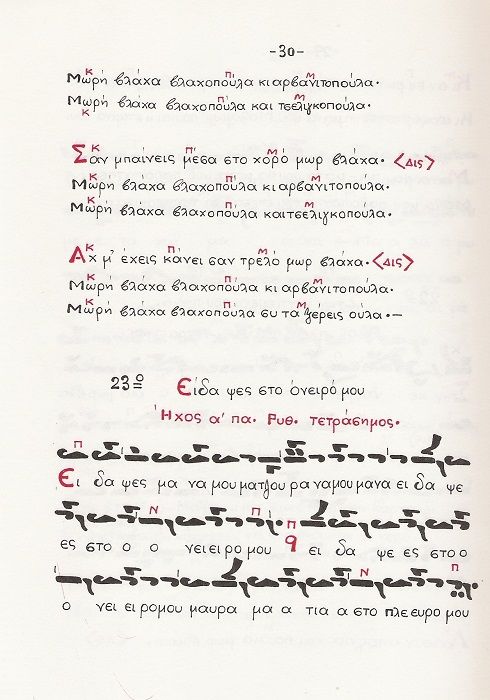 -30-
Μωρή βλάχα βλαχοπούλα κι αρβανιτοπούλα.
Μωρή βλάχα βλαχοπούλα και τσελιγκοπούλα.
Σαν μπαίνεις μέσα στο χορό μωρ βλάχα. <Δις>
Μωρή βλάχα βλαχοπούλα κι αρβανιτοπούλα.
Μωρή βλάχα βλαχοπούλα και τσελιγκοπουλα.
Αχ μ' έχεις κάνει σαν τρελό μωρ βλαχα. <Δις>
Μωρή βλάχα βλαχοπούλα κι αρβανιτοπούλα.
Μωρή βλάχα βλαχοπούλα συ τα ξέρεις ούλα.-
23ο Είδα ψες στο όνειρό μου
Ήχος α' πα. Ρυθ. τετράσημος.
Ει δα ψες μα να μου ρα να μου μανα ει δα ψε
ες στο ο ο νει ει ρο μου ει δα ψε ες στο ο
ο νει ει ρομου μαυρα μα α τια α στο πλευρο μου